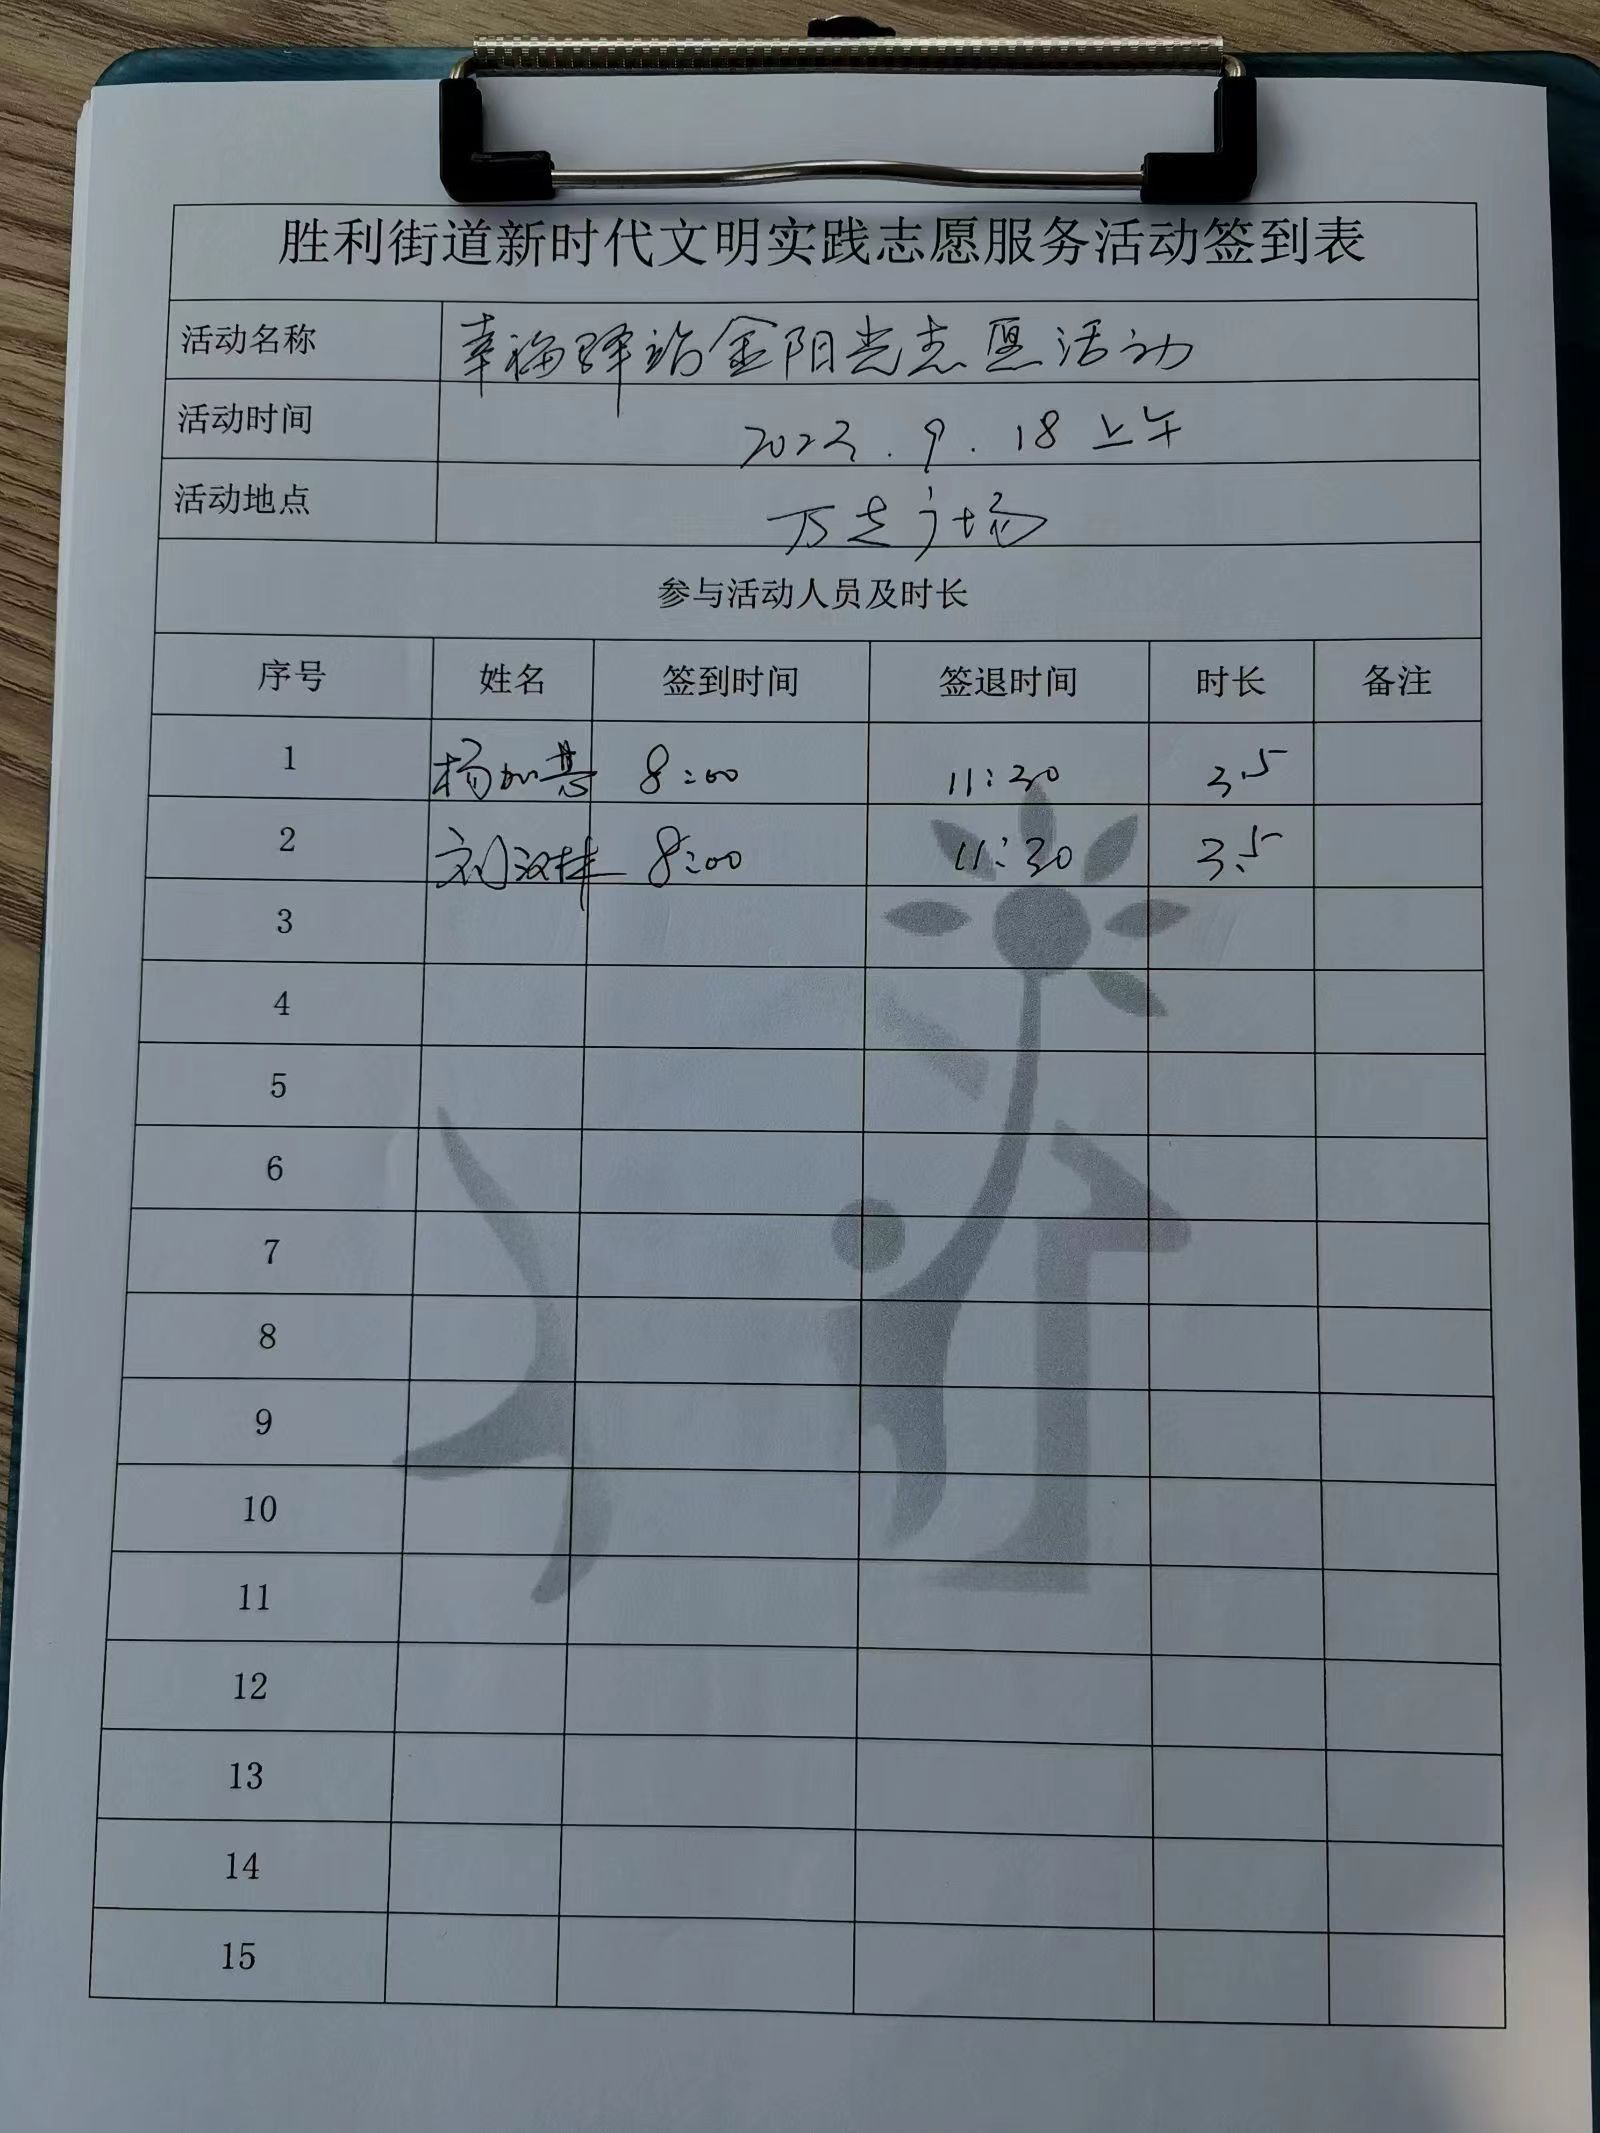 胜利街道新时代文明实践志愿服务活动签到表
活动名称 幸福驿站金阳光志愿活动
活动时间 2023.9.18上午
活动地点 万达广场
参与活动人员及时长
序号 姓名 签到时间 签退时间 时长 备注
1 杨加慧 8:00 11:30 3.5
2 刘汉林 8:00 11:30 3.5
3
4
5
6
7
8
9
10
11
12
13
14
15